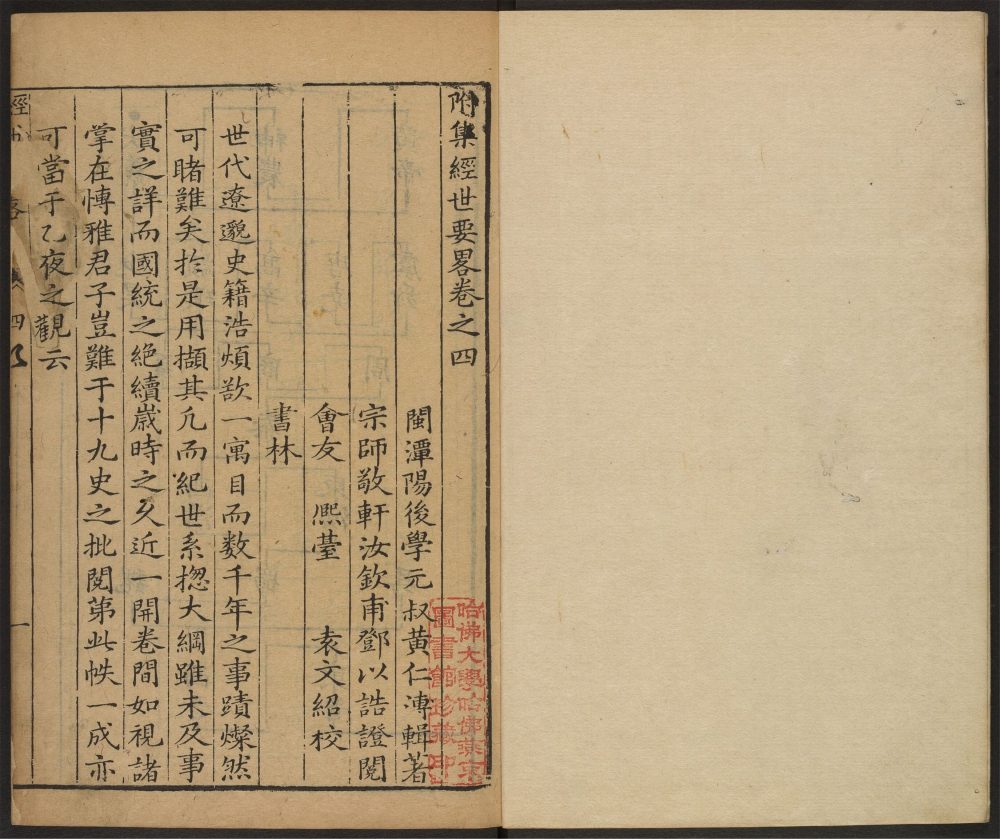 附集經世要畧卷之四
閩潭陽後學元叔黃仁溥輯著
宗師敬軒汝欽甫鄧以誥證閱
會友　熈臺　　袁文紹校
書林
世代遼邈史籍浩煩欲一寓目而数千年之事蹟燦然
可睹難矣扵是用擷其凢而紀世系揔大綱雖未及事
實之詳而國統之絶續嵗時之久近一開卷間如視諸
掌在博雅君子豈難于十九史之批閱第此帙一成亦
可當于乙夜之觀云
經 畧 四 一
哈佛大學哈佛燕京
圖書館珍藏印